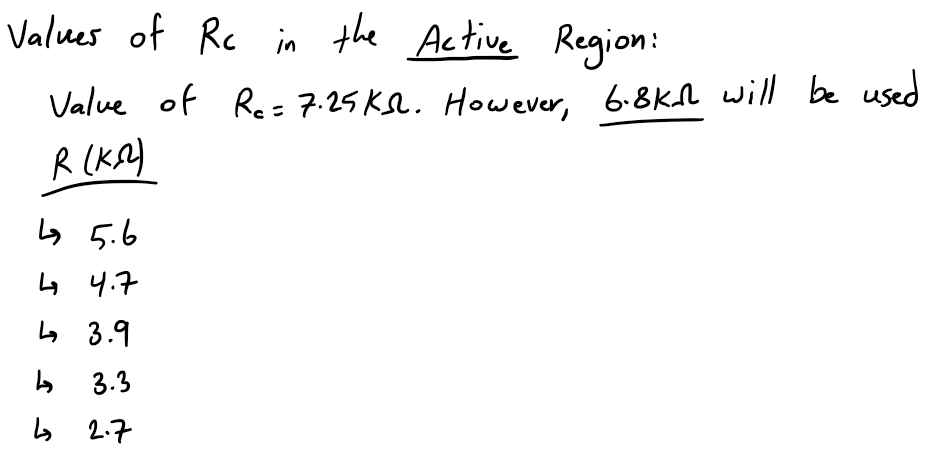 Values of Rc in the Active Region:
Value of Rc = 7.25KΩ. However, 6.8KΩ will be used
R (KΩ)
↳ 5.6
↳ 4.7
↳ 3.9
↳ 3.3
↳ 2.7